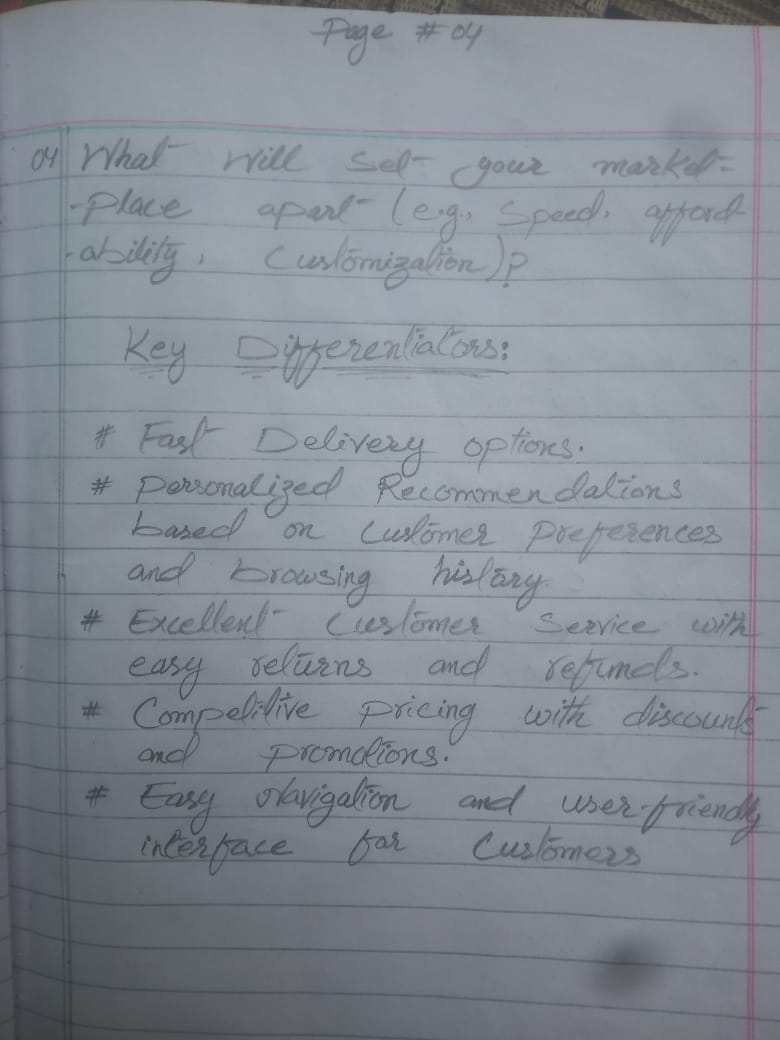 Page # 04
04 What will set your market-
-place apart (e.g., Speed, afford
-ability, Customization)?
Key Differentiators:
# Fast Delivery options.
# Personalized Recommendations
based on Customer Preferences
and browsing history.
# Excellent Customer Service with
easy returns and refunds.
# Competitive pricing with discounts
and promotions.
# Easy Navigation and user-friendly
interface for Customers